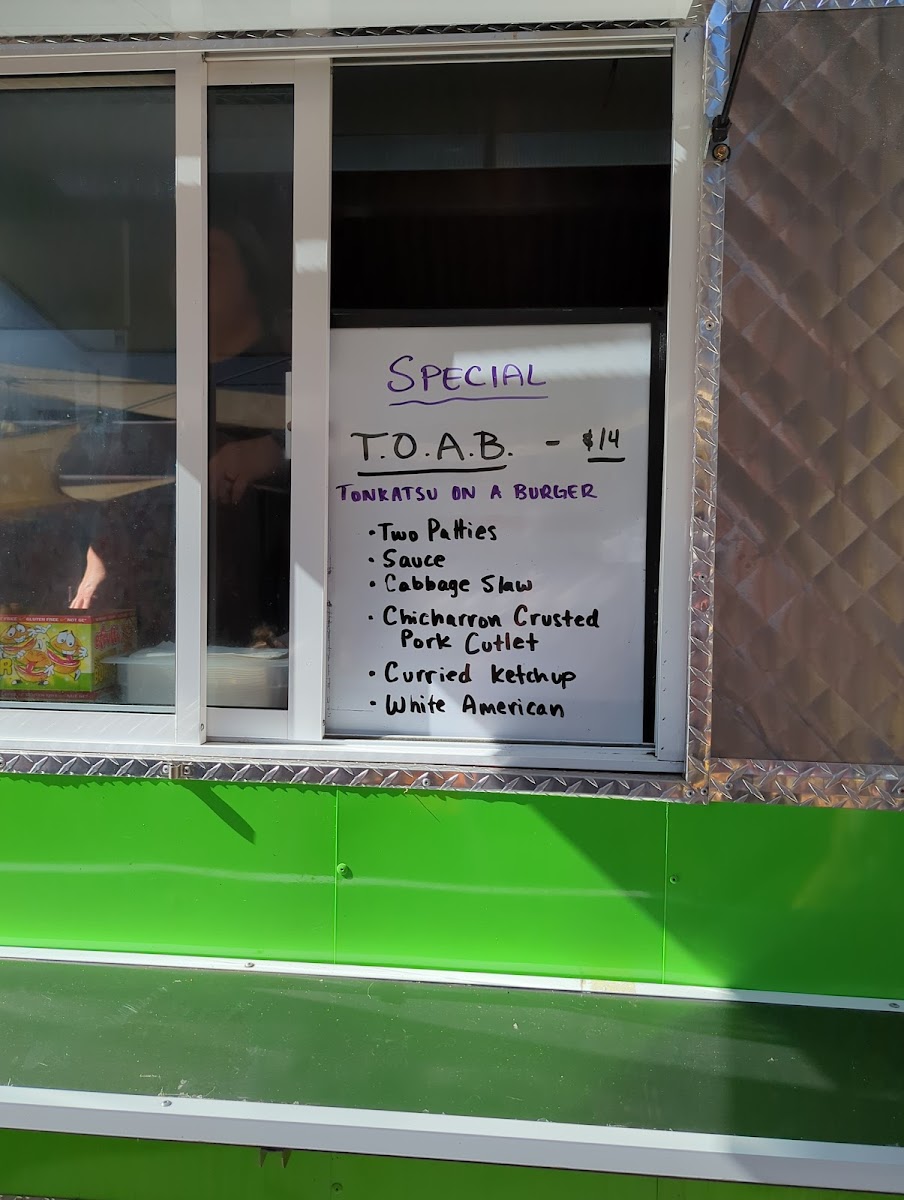 SPECIAL
T.O.A.B. - $14
TONKATSU ON A BURGER
• Two Patties
• Sauce
• Cabbage Slaw
• Chicharron Crusted
Pork Cutlet
• Curried Ketchup
• White American
GLUTEN FREE